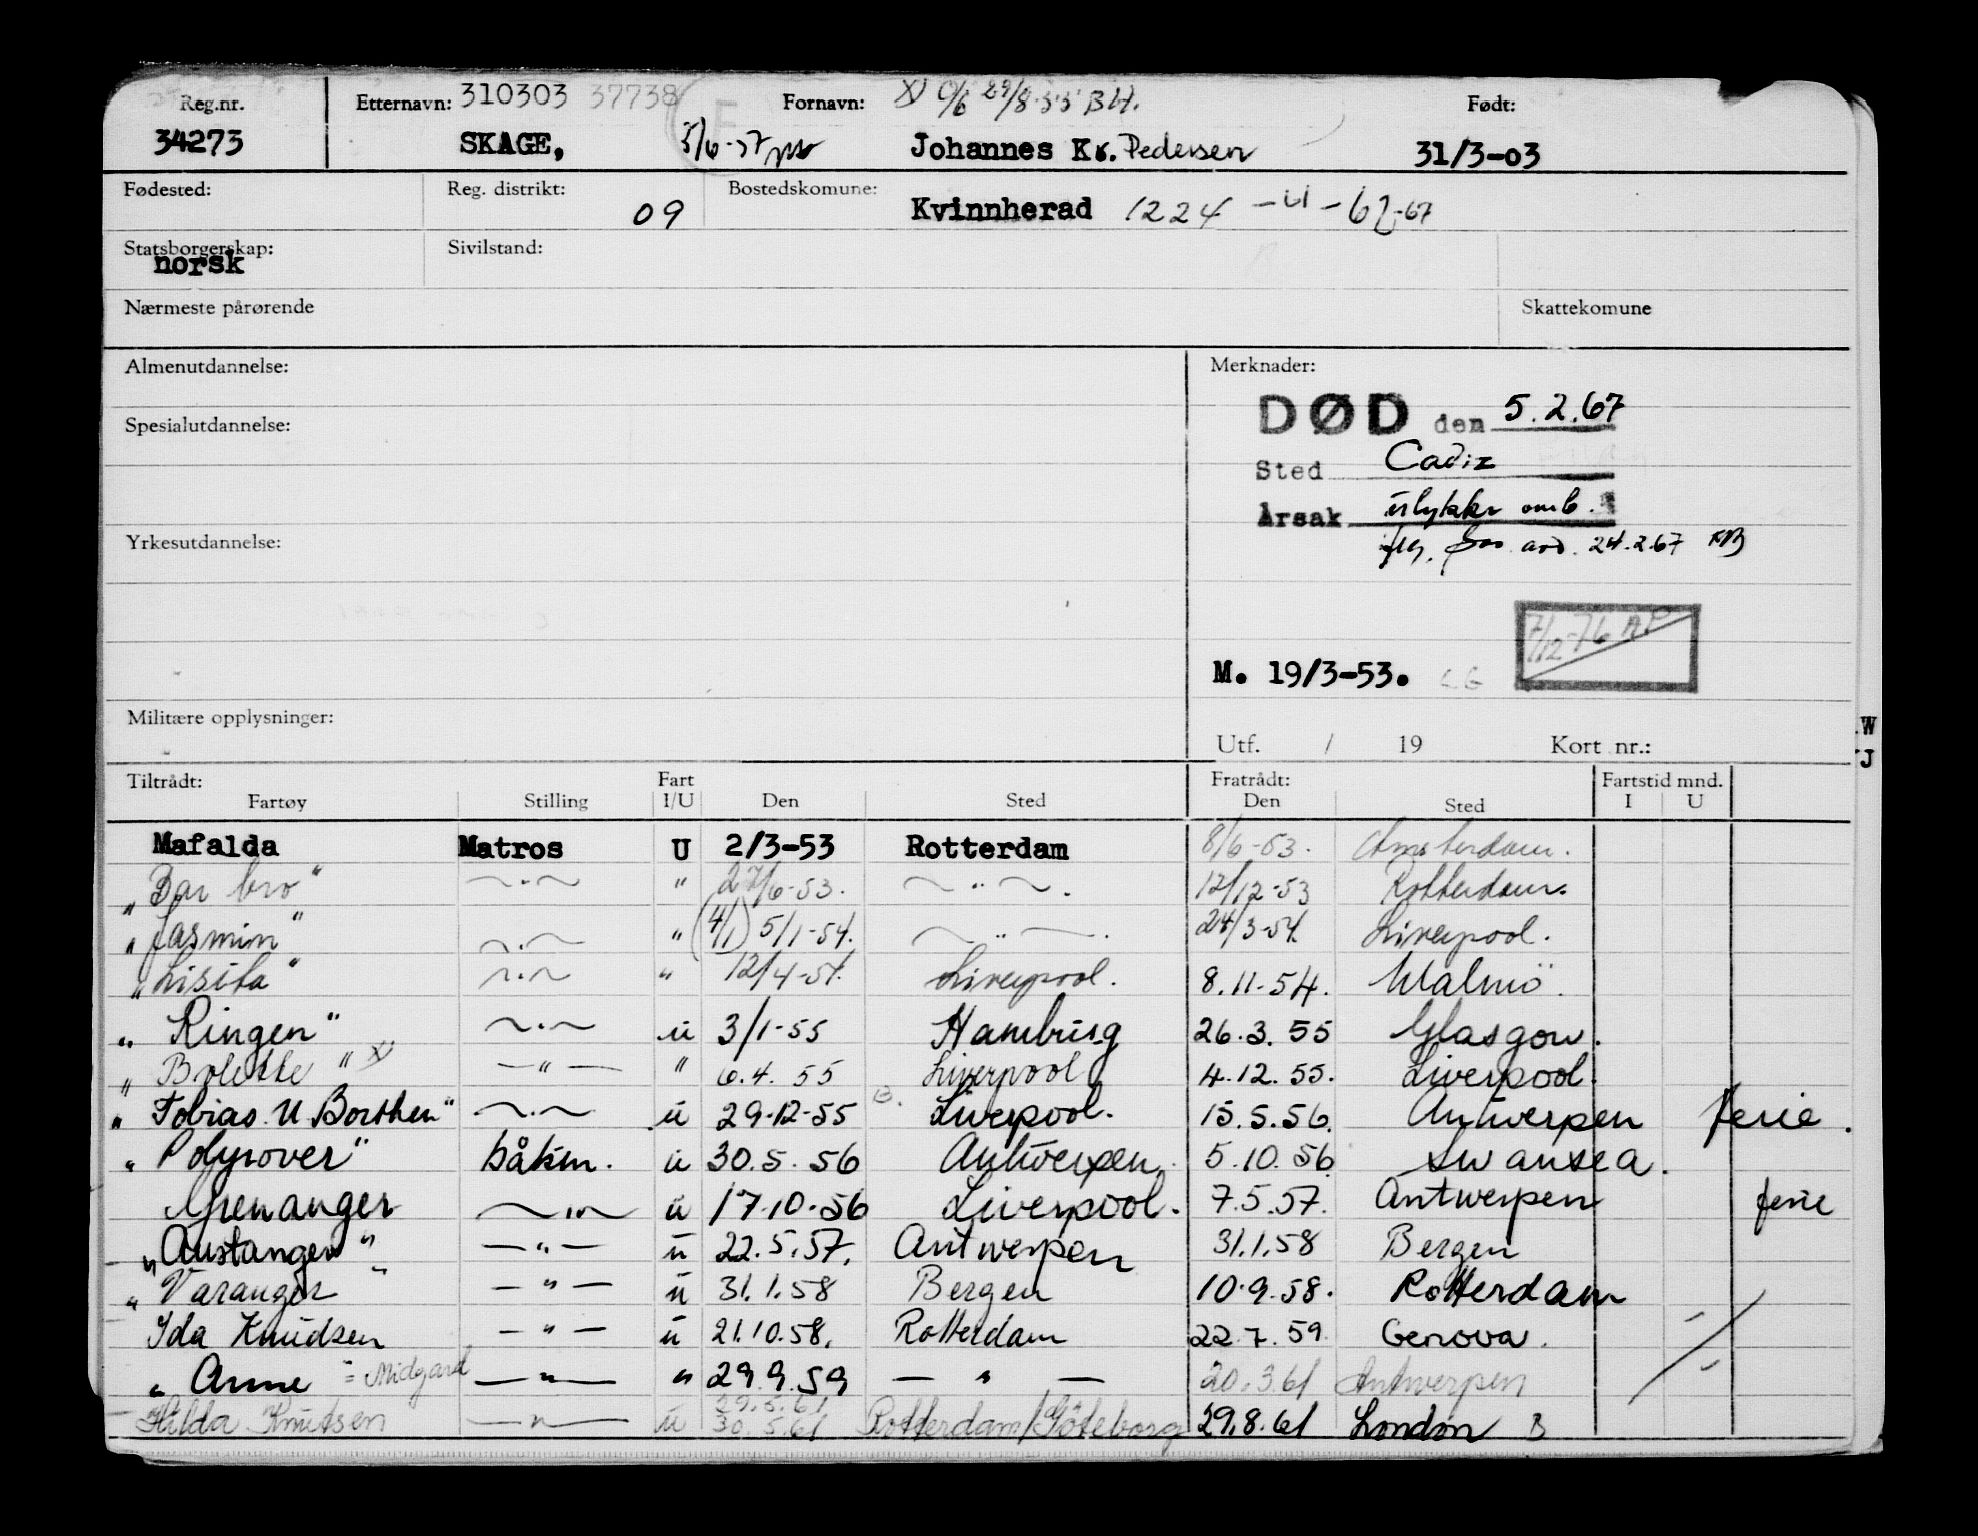 Reg.nr. Etternavn: 310303 37738 Fornavn: Født:
34273 SKAGE, 5/6-57 Johannes Kr. Pedersen 31/3-03
Fødested: Reg. distrikt: 09 Bostedskomune: Kvinnherad 1224 -61-62-67
Statsborgerskap: norsk Sivilstand:
Nærmeste pårørende Skattekomune
Almenutdannelse: Merknader:
DØD den 5.2.67
Spesialutdannelse:
Sted Cadiz
Årsak ulykke omb.
24.2.67
Yrkesutdannelse:
7/12-76 AP
M. 19/3-53.
Militære opplysninger:
Utf. / 19 Kort nr.:
W
J
Tiltrådt: Fart Fratrådt: Fartstid mnd.
Fartøy Stilling I/U Den Sted Den Sted I U
Mafalda Matros U 2/3-53 Rotterdam 8/6-53. Amsterdam.
"Bar bro" ~"~ " 27/6-53. ~"~. 12/12-53 Rotterdam.
"Jasmin" ~"~ " (4/1) 5/1-54. ~"~. 24/3-54. Liverpool.
"Lisita" ~"~ " 12/4-54. Liverpool. 8.11-54. Malmö.
"Ringen" ~"~ u 3/1-55 Hamburg 26.3.55 Glasgow.
"Bolette" x) —"— " 6.4.55 Liverpool 4.12.55. Liverpool.
"Tobias U. Borthen" ~"~ u 29-12-55 Liverpool. 15.5.56. Antwerpen ferie.
"Polyrover" båtsm. u 30.5.56 Antwerpen. 5.10.56 Swansea.
Grenanger ~"~ u 17.10.56 Liverpool. 7.5.57. Antwerpen ferie
"Austanger" —"— u 22.5.57. Antwerpen 31.1.58 Bergen
"Varanger" —"— u 31.1.58 Bergen 10.9.58. Rotterdam
Ida Knudsen —"— u 21.10.58. Rotterdam 22.7.59. Genova.
" Anne = Midgard —"— " 29.9.59 —"— 20.3.61 Antwerpen
29.5.61
Hilda Knutsen —"— u 30.5.61 Rotterdam/Göteborg 29.8.61 London B